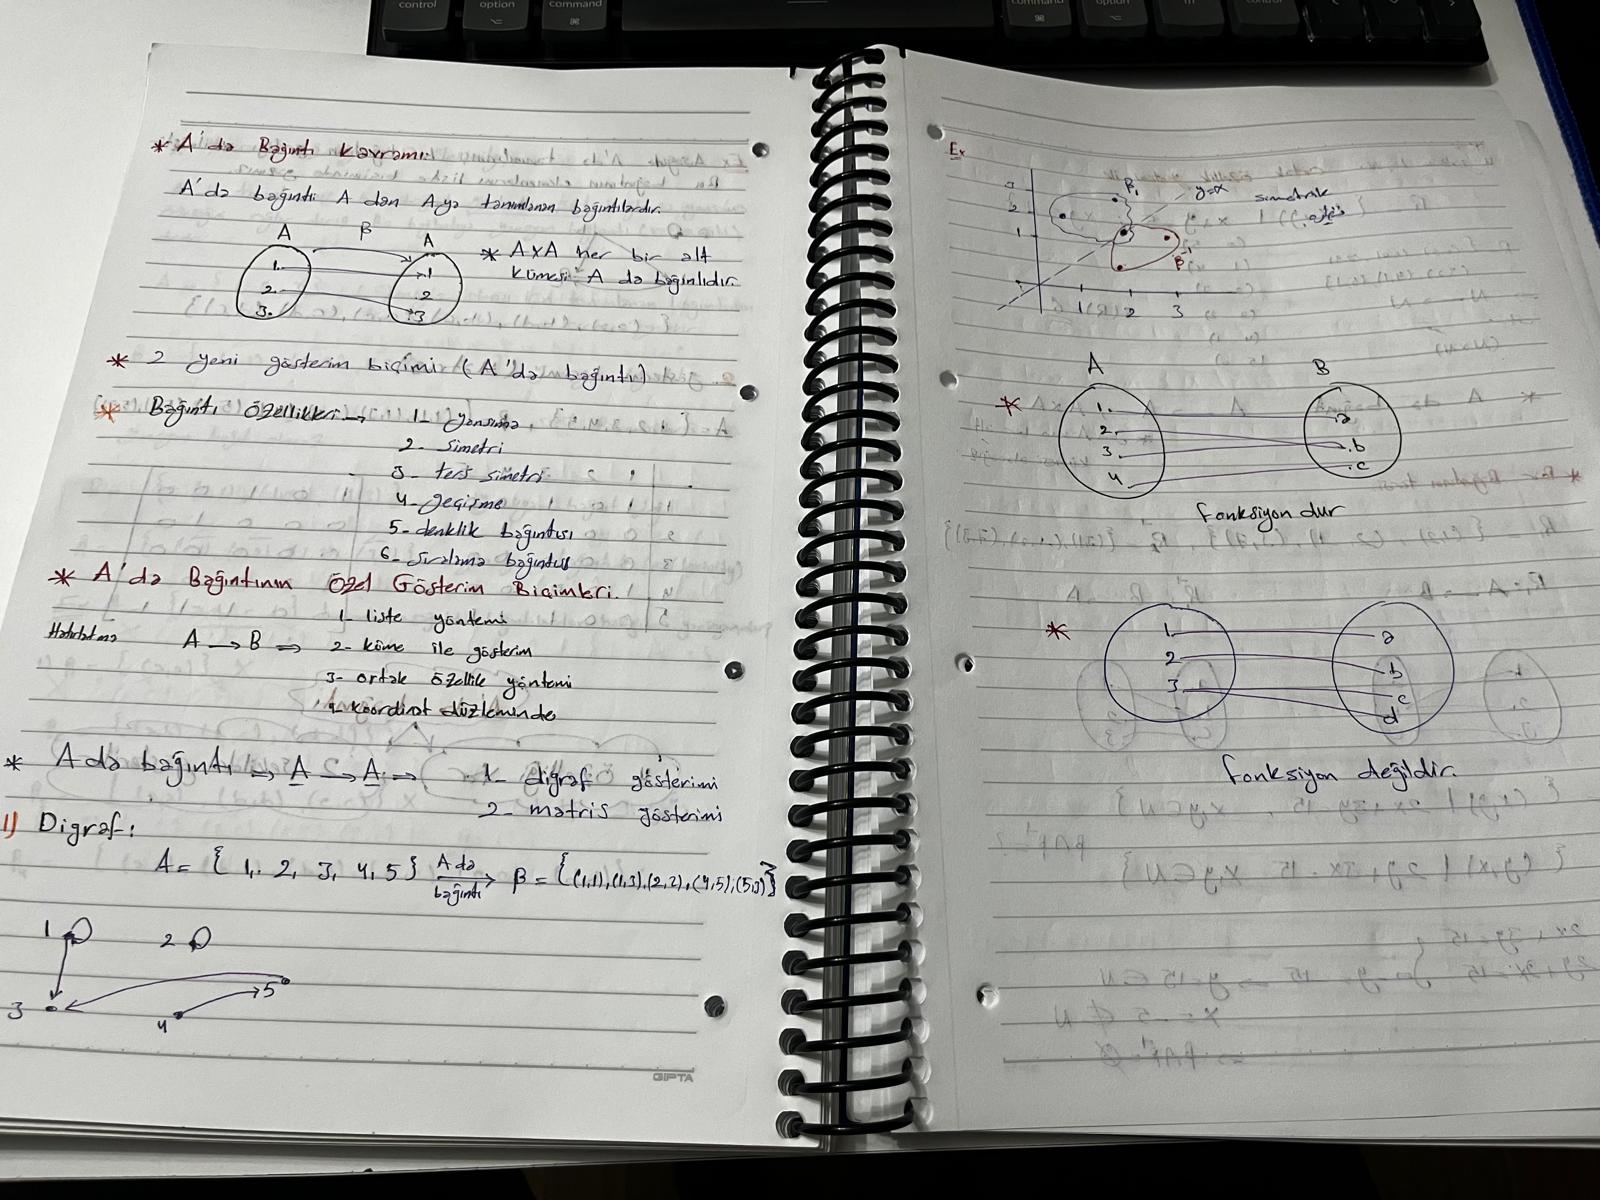 control option command command option control
* A'da Bağıntı Kavramı:
A'da bağıntı A dan A ya tanımlanan bağıntılardır.
A β A
1. .1
2. .2
3. .3
* AxA her bir alt
kümesi A da bağıntıdır.
* 2 yeni gösterim biçimi (A'da bağıntı)
* Bağıntı Özellikleri → 1- yansıma
2- Simetri
3- ters simetri
4- geçişme
5- denklik bağıntısı
6- sıralama bağıntısı
* A'da Bağıntının Özel Gösterim Biçimleri.
1- liste yöntemi
Hatırlatma A → B ⇒ 2- küme ile gösterim
3- ortak özellik yöntemi
4- koordinat düzleminde
* A da bağıntı ⇒ A → A ⇒ 1- digraf gösterimi
2- matris gösterimi
1) Digraf:
A = { 1, 2, 3, 4, 5 } A da bağıntı → β = {(1,1),(1,3),(2,2),(4,5),(5,3)}
1 2
3 4 5
GIPTA
Ex
3
2
1
β₁ y=x simetrik
1 2 3
A B
* 1. .a
2. .b
3. .c
4
fonksiyondur
* 1. a
2 b
3 c
d
fonksiyon değildir.